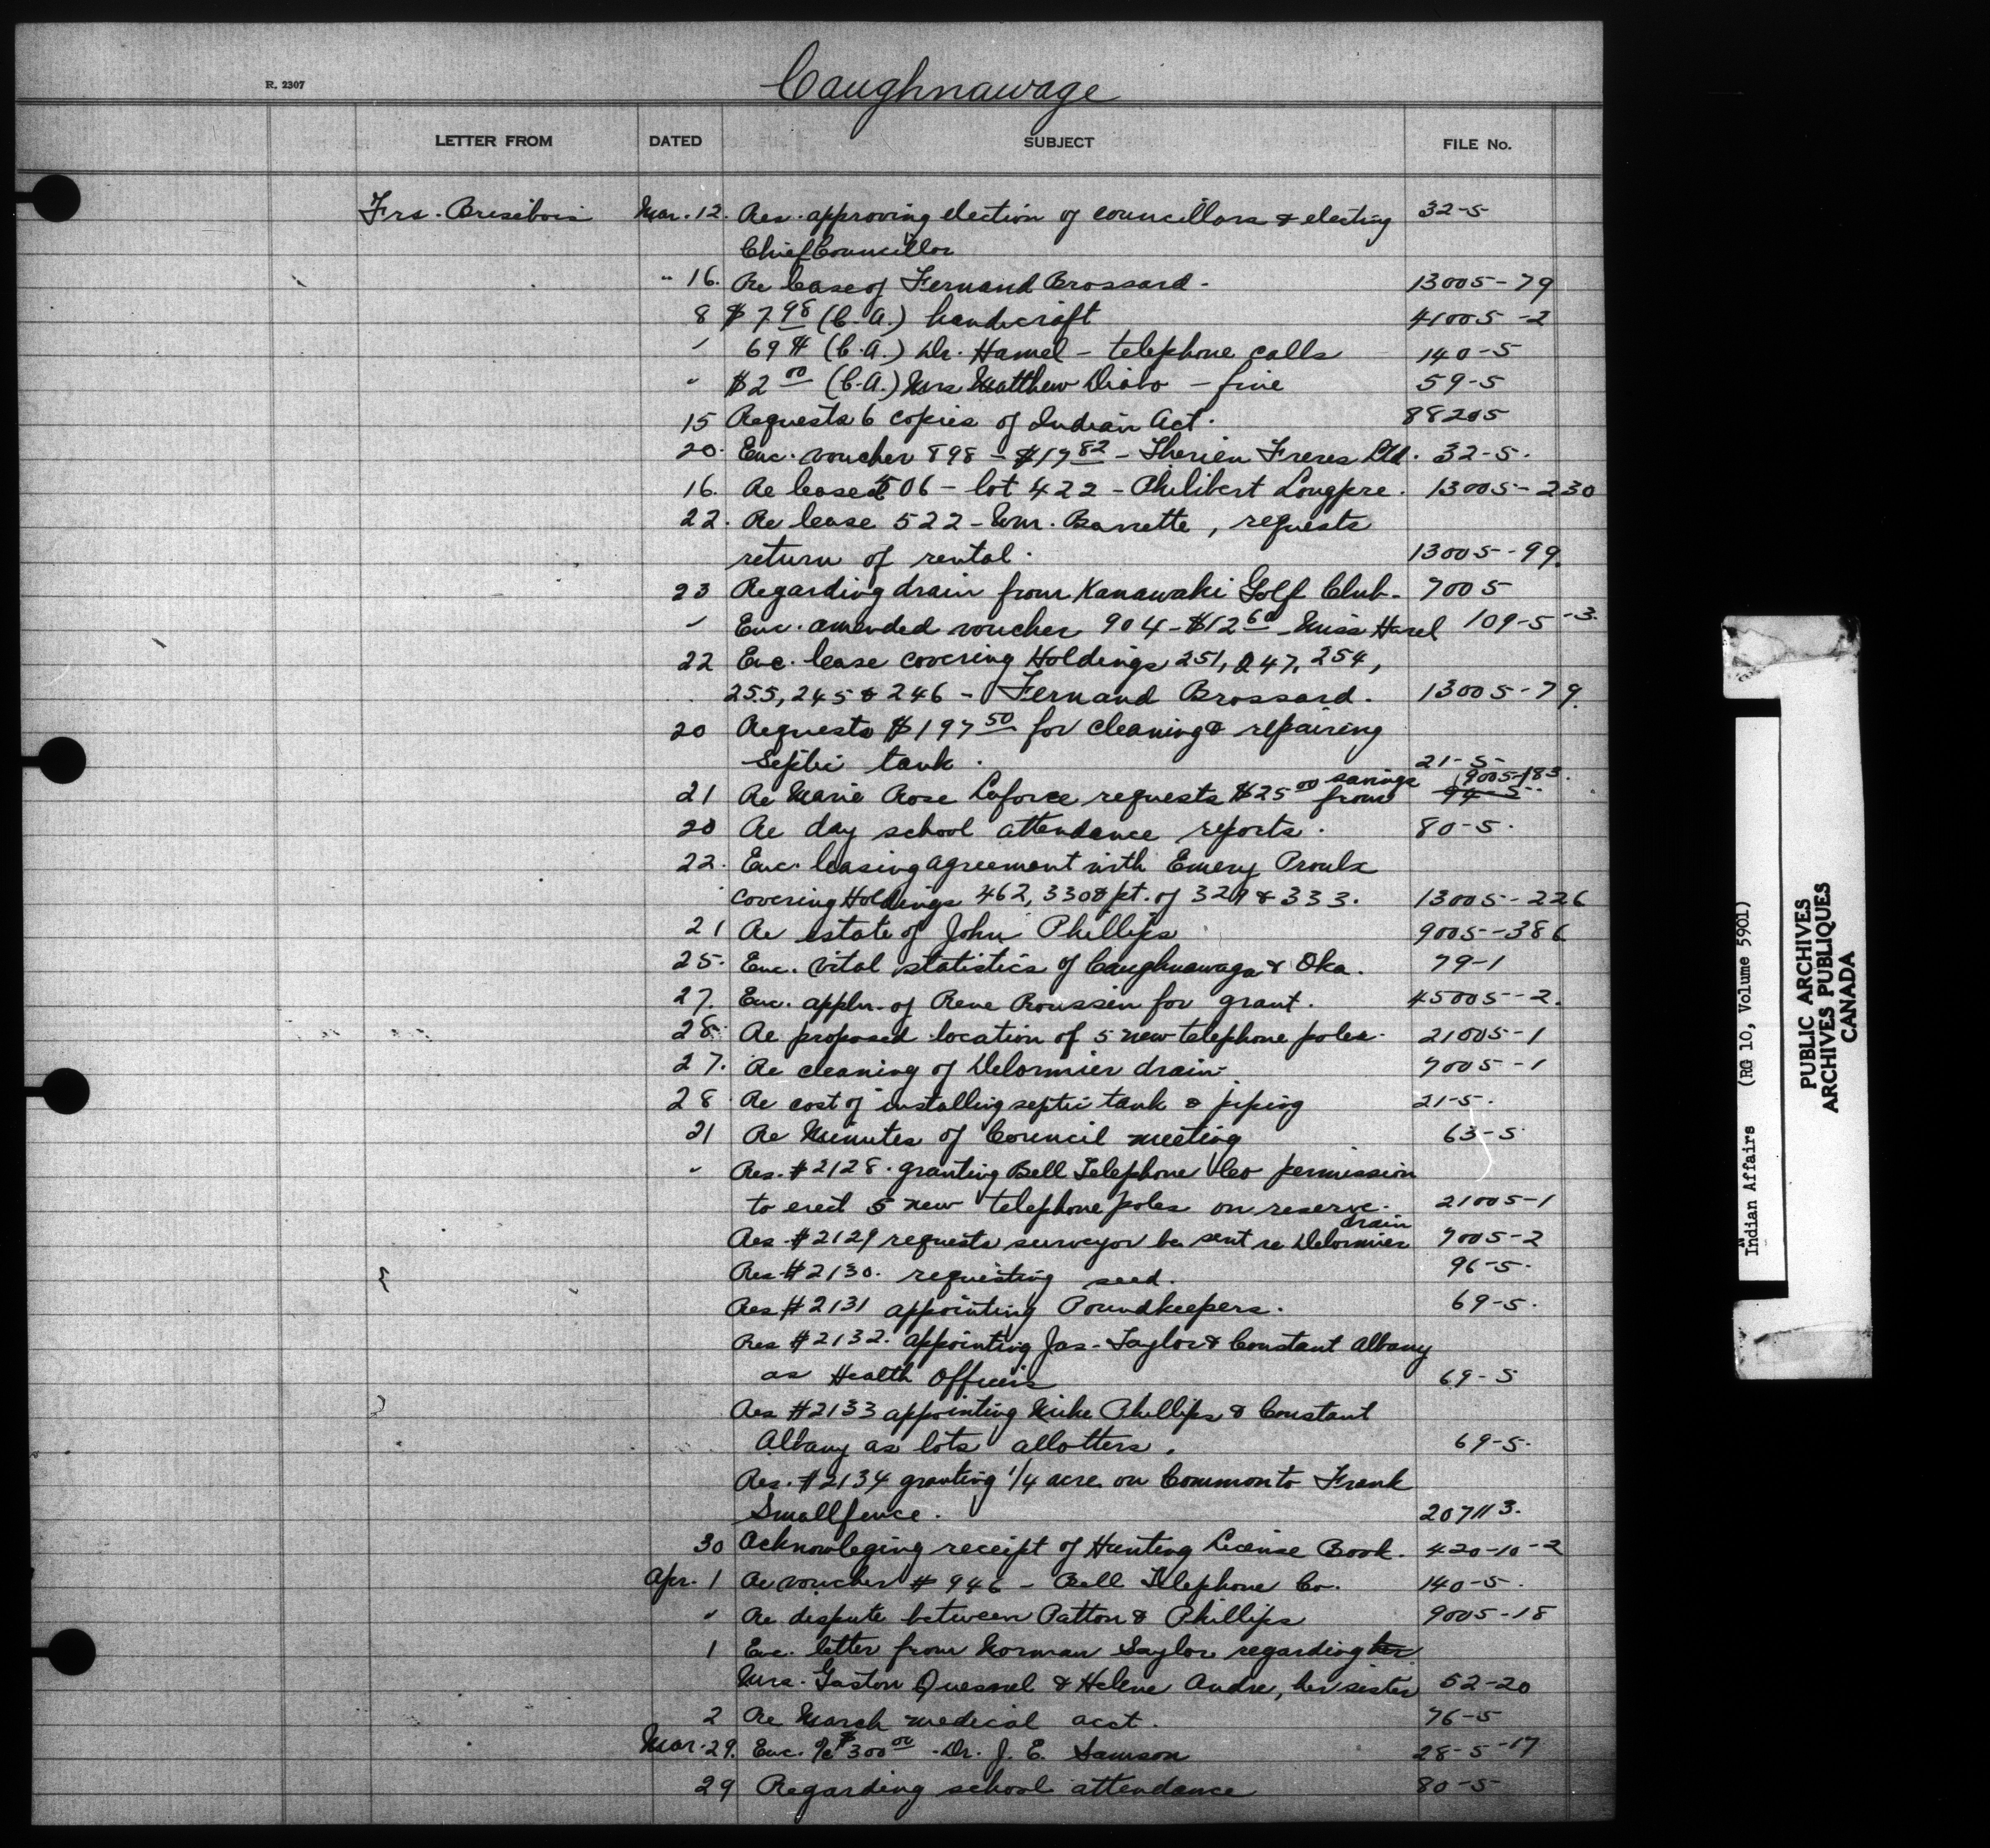 R. 2307
Caughnawage
LETTER FROM DATED SUBJECT FILE No.
Frs. Brisebois Mar. 12. Res. approving election of councillors & electing 32-5
Chief Councillor
" 16. Re lease of Fernand Brossard. 13005-79
8 $7.98 (C.A.) handicraft 41005-2
" 69¢ (C.A.) Dr. Hamel - telephone calls 140-5
" $2.00 (C.A.) Mrs Matthew Diabo - fine 59-5
15 Requests 6 copies of Indian Act. 88205
20. Enc. voucher 898 - $17.82 - Therien Freres Ltd. 32-5.
16. Re lease 506 - lot 422 - Philibert Longpre. 13005-230
22. Re lease 522 - Wm. Barrette, requests
return of rental. 13005-99.
23 Regarding drain from Kanawaki Golf Club. 7005
" Enc. amended voucher 904 - $12.60 - Miss Harel 109-5-3.
22 Enc. lease covering Holdings 251, 247, 254,
255, 245 & 246 - Fernand Brossard. 13005-79.
20 Requests $197.50 for cleaning & repairing
Septic tank. 21-5-
21 Re Marie Rose Laforce requests $25.00 from savings 9005-183.
20 Re day school attendance reports. 80-5.
22. Enc. leasing agreement with Emery Proulx
covering Holdings 462, 330 & pt. of 329 & 333. 13005-226
21 Re estate of John Phillips 9005-386
25. Enc. vital statistics of Caughnawaga & Oka. 79-1
27. Enc. appln. of Rene Roussin for grant. 45005-2.
28. Re proposed location of 5 new telephone poles. 21005-1
27. Re cleaning of Delormier drain. 7005-1
28. Re cost of installing septic tank & piping 21-5.
21 Re Minutes of Council meeting 63-5
" Res. #2128. granting Bell Telephone Co permission
to erect 5 new telephone poles on reserve. 21005-1
Res. #2129 requests surveyor be sent re Delormier drain 7005-2
Res #2130. requesting seed. 96-5.
Res #2131 appointing Poundkeepers. 69-5.
Res #2132. appointing Jas. Taylor & Constant Albany
as Health Officers 69-5
Res #2133 appointing Mike Phillips & Constant
Albany as lots allotters. 69-5.
Res. #2134 granting 1/4 acre on Common to Frank
Smallfence. 207113.
30 Acknowleging receipt of Hunting License Book. 420-10-2
Apr. 1 Re voucher #946 - Bell Telephone Co. 140-5.
" Re dispute between Patton & Phillips 9005-18
1 Enc. letter from Norman Saylor regarding her
Mrs. Gaston Quesnel & Helene Andre, her sister 52-20
2 Re March medical acct. 76-5
Mar. 29. Enc. a/c $300.00 - Dr. J. E. Samson 28-5-17
29 Regarding school attendance 80-5
Indian Affairs (RG 10, Volume 5901)
PUBLIC ARCHIVES
ARCHIVES PUBLIQUES
CANADA